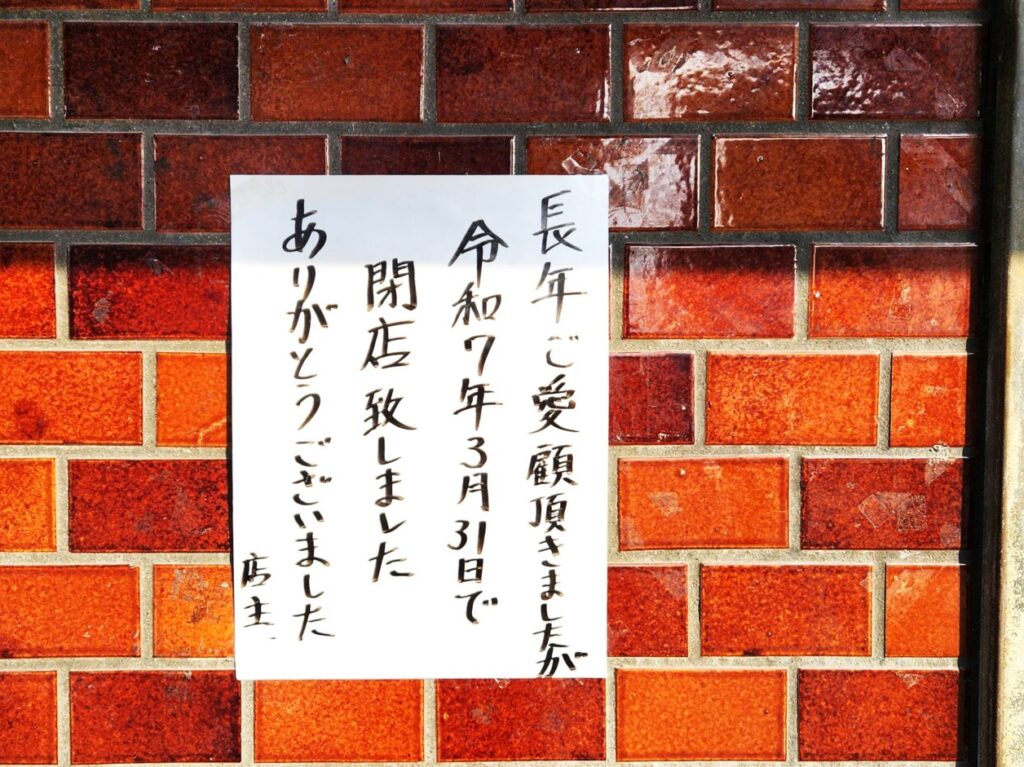 長年ご愛顧頂きましたが
令和7年3月31日で
閉店致しました
ありがとうございました
店主